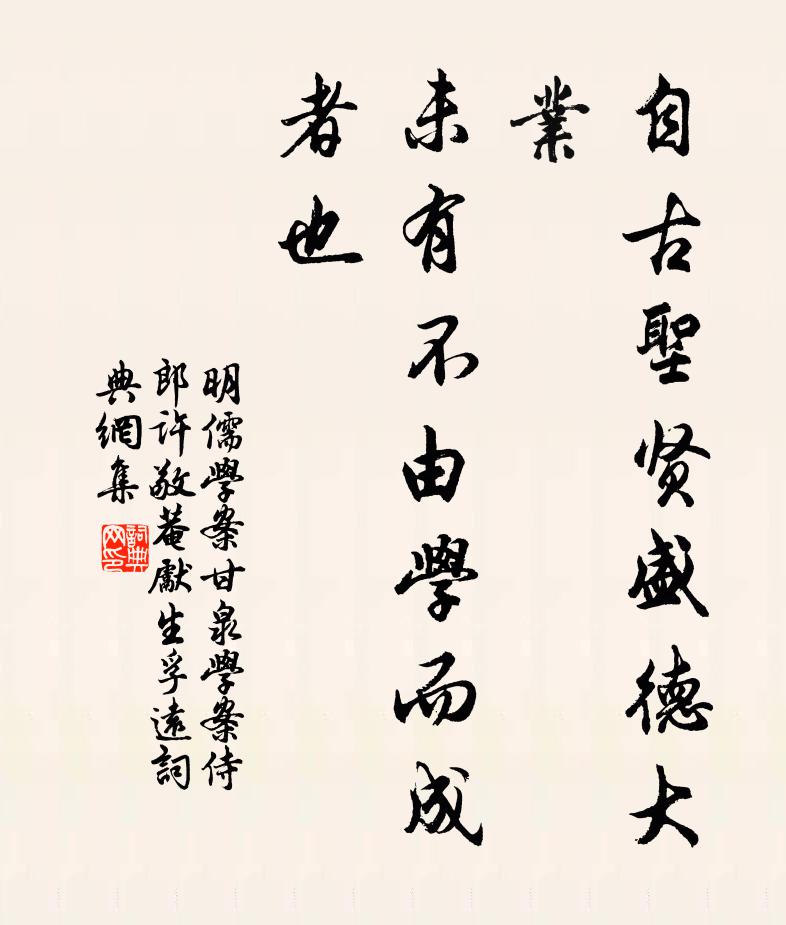 自古聖贤盛德大
業
未有不由學而成
者也
明儒學案甘泉學案侍
郎许敬菴先生孚遠詞
典網集
詞典
网印